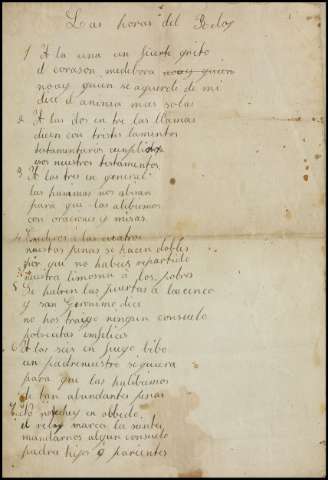 Las horas del Reloj
1 A la una un fuerte grito
el corason medibora
noay quien se aquerde de mi
dice el anima mas sola
2 A las dos en tre las llamas
disen con tristes lamentos
testamentarios cumplid
vos nuestros testamentos
3 A las tres en general
las paramos nos abran
para que las alibiemos
con oraciones y misas
4 a las cuatro
nuestras penas se hacen dobles
por que no habeis repartido
nuestra limosna a los pobres
5 Se habren las puertas a las cinco
y san Geronimo dice
no hos traygo ningun consuelo
pobrecitas infelices
6 A las seis en fuego bibo
un padrenuestro siquiera
para que las
de tan abundantes penas
7 No en olbido
el reloj marca la santa
mandarnos algun consuelo
padre hijos o parientes